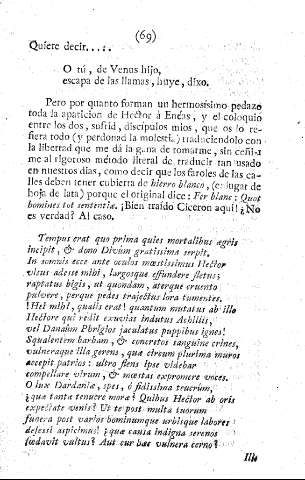 (69)
Quiere decir.....
O tú, de Venus hijo,
escapa de las llamas, huye, dixo.
Pero por quanto forman un hermosísimo pedazo
toda la aparicion de Hector á Enéas, y el coloquio
entre los dos, sufrid, discípulos mios, que os lo re-
fiera todo (y perdonad la molestia) traduciendolo con
la libertad que me dá la gana de tomarme, sin ceñir-
me al rigoroso método literal de traducir tan usado
en nuestros dias, como decir que los faroles de las ca-
lles deben tener cubierta de hierro blanco, (en lugar de
hoja de lata) porque el original dice: Fer blanc: Quot
homines tot sententiæ. ¡Bien traído Ciceron aqui! ¿No
es verdad? Al caso.
Tempus erat quo prima quies mortalibus ægris
incipit, & dono Divûm gratissima serpit.
In somnis ecce ante oculos mœstissimus Hector
visus adesse mihi, largosque effundere fletus;
raptatus bigis, ut quondam, aterque cruento
pulvere, perque pedes trajectus lora tumentes.
¡Hei mihi, qualis erat! quantum mutatus ab illo
Hectore qui redit exuvias indutus Achillis,
vel Danaûm Phrigios jaculatus puppibus ignes!
Squalentem barbam, & concretos sanguine crines,
vulneraque illa gerens, quæ circum plurima muros
accepit patrios: ultro flens ipse videbar
compellare virum, & mœstas expromere voces.
O lux Dardaniæ, spes, ó fidissima teucrum,
¿quæ tantæ tenuere moræ? Quibus Hector ab oris
expectate venis? Ut te post multa tuorum
funera post varios hominumque urbisque labores
defessi aspicimus! ¿quæ causa indigna serenos
fœdavit vultus? Aut cur hæc vulnera cerno?
Ille